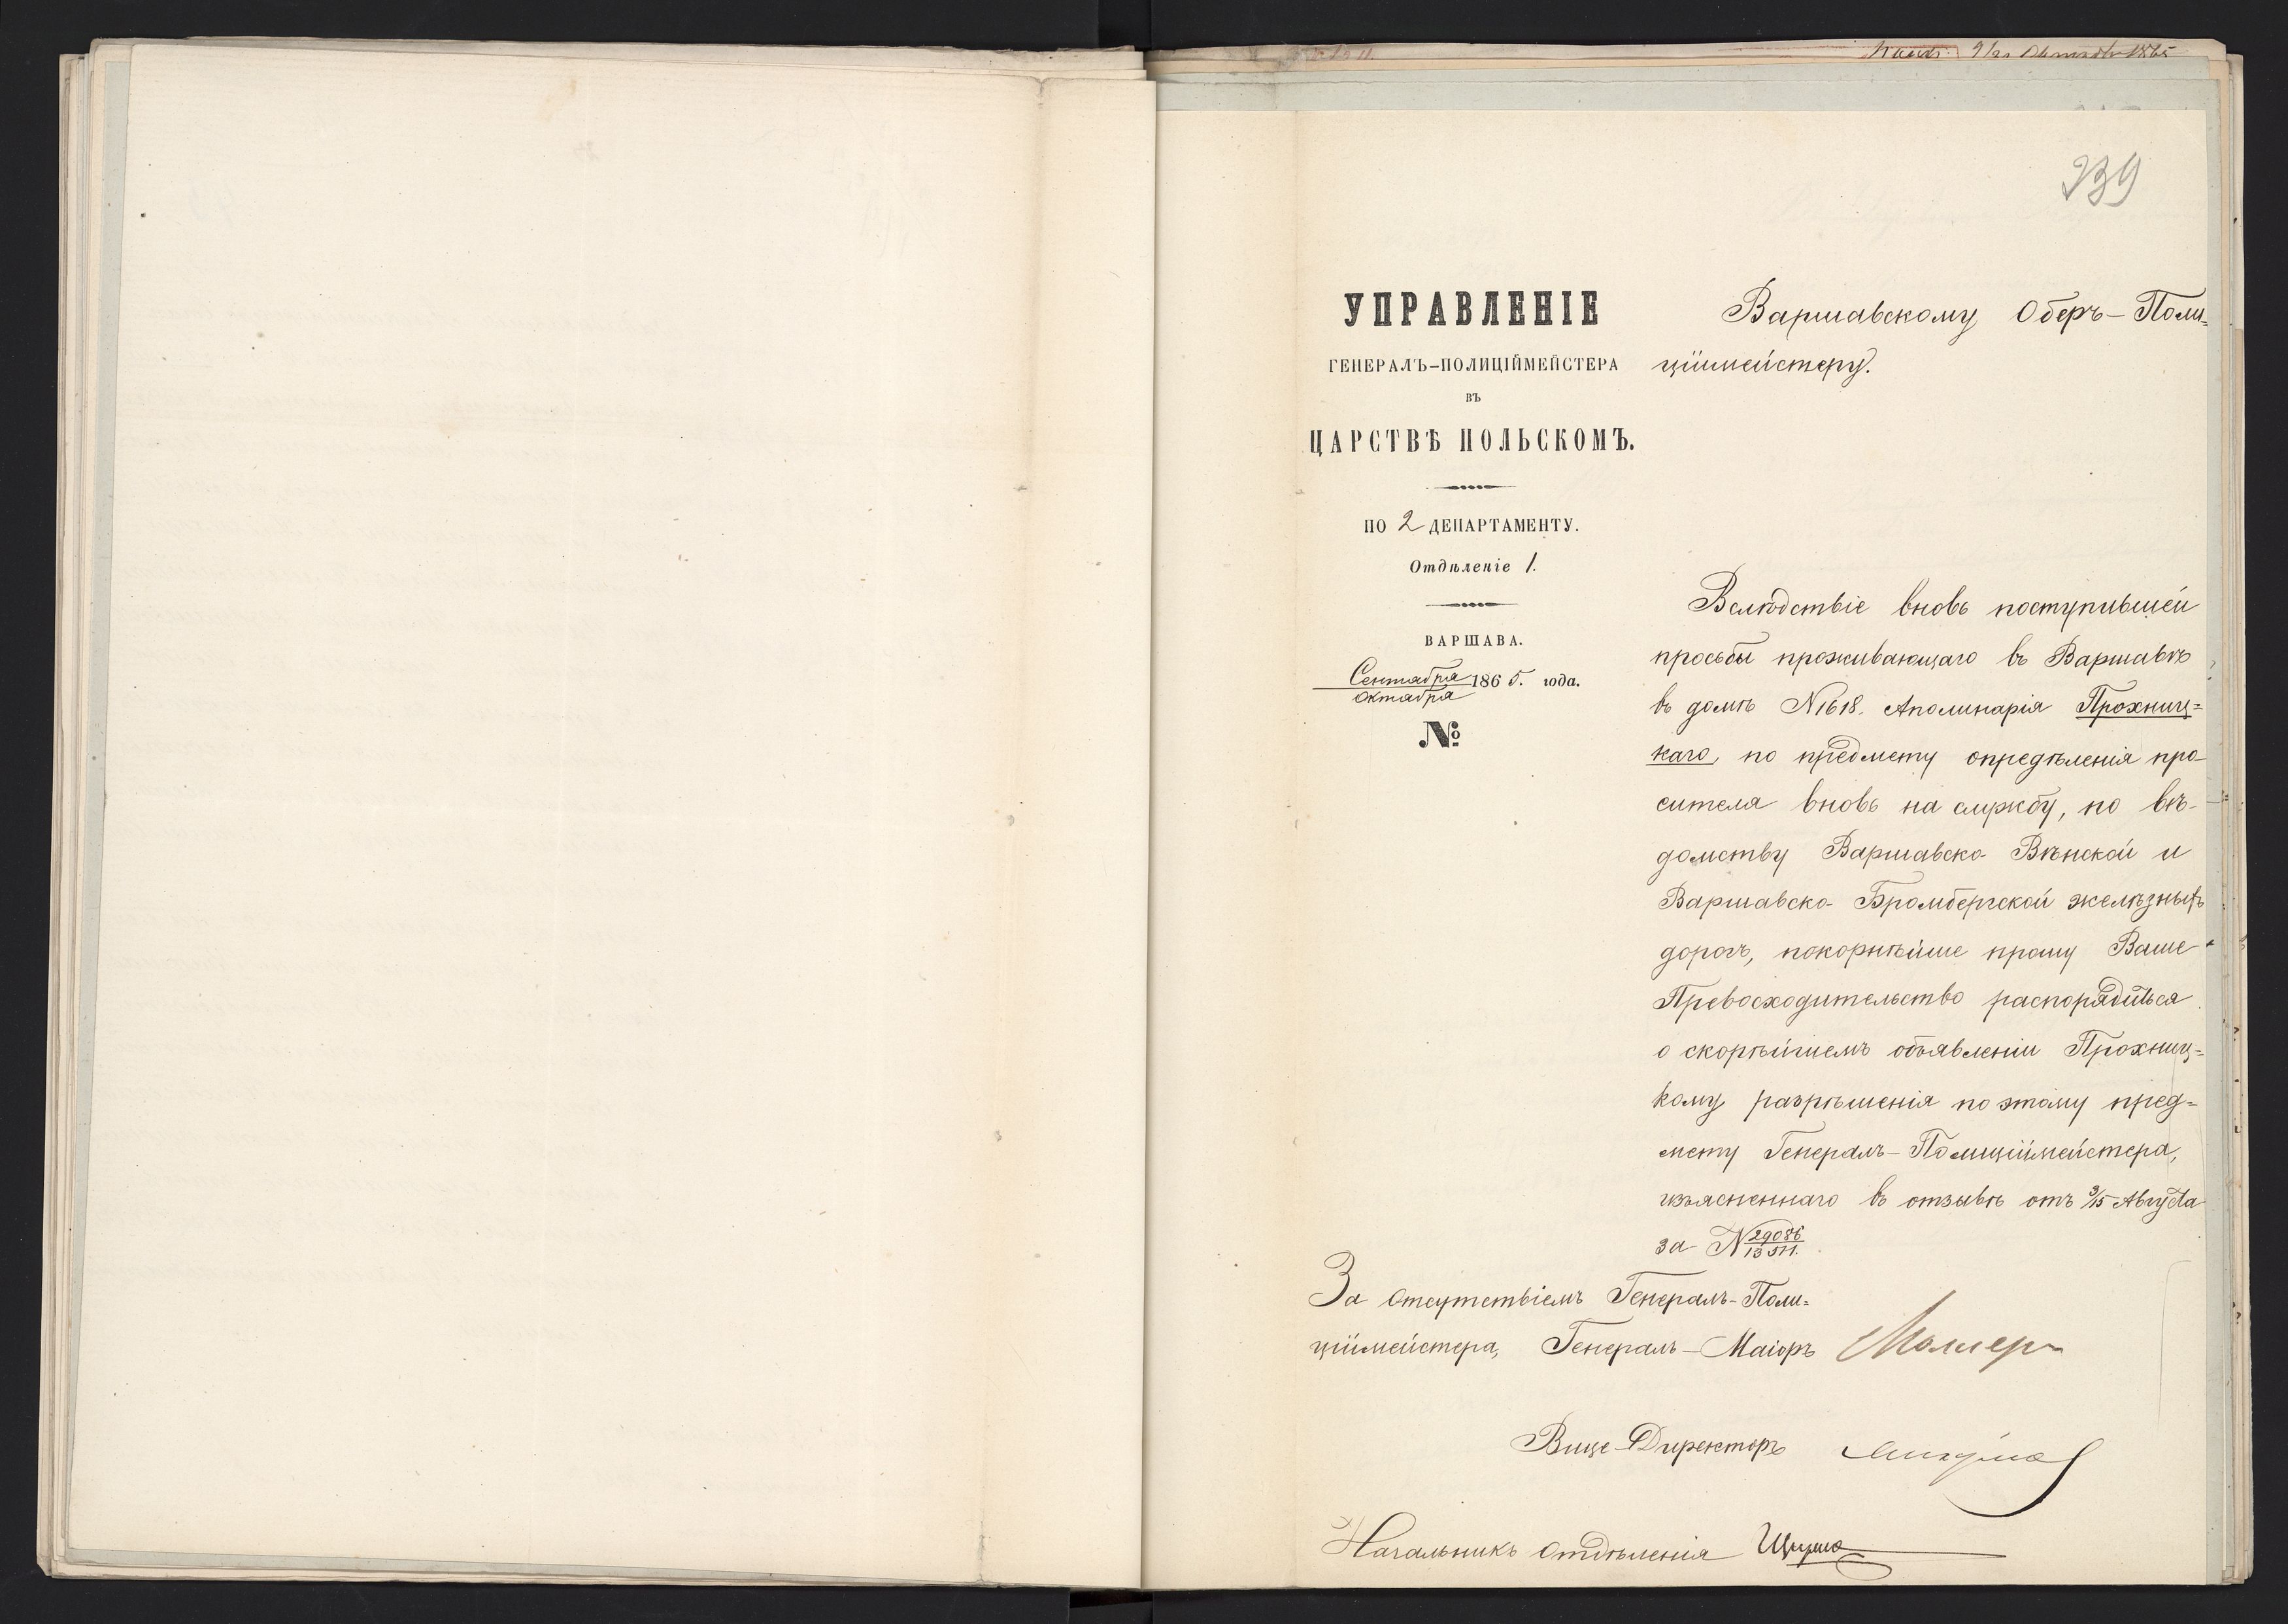 9/21 Октября 1865
239
УПРАВЛЕНІЕ
ГЕНЕРАЛЪ-ПОЛИЦІЙМЕЙСТЕРА
ВЪ
ЦАРСТВѢ ПОЛЬСКОМЪ.
ПО 2 ДЕПАРТАМЕНТУ.
Отдѣленіе 1.
ВАРШАВА.
Сентября
Октября 1865. года.
№
Варшавскому Оберъ-Поли=
ціймейстеру.
Вслѣдствіе вновь поступившей
просьбы проживающаго въ Варшавѣ
въ домѣ N1618. Аполинарія Прохниц=
каго, по предмету опредѣленія про-
сителя вновь на службу, по вѣ-
домству Варшавско-Вѣнской и
Варшавско-Бромбергской желѣзныхъ
дорогъ, покорнѣйше прошу Ваше
Превосходительство распорядиться
о скорѣйшемъ объявленіи Прохниц=
кому разрѣшенія по этому пред=
мету Генералъ-Полиціймейстера,
изъясненнаго въ отзывѣ отъ 3/15 Августа
за N 29086/13511.
За отсутствіемъ Генералъ-Поли=
ціймейстера, Генералъ-Маіоръ
Вице-Директоръ
Начальникъ Отдѣленія